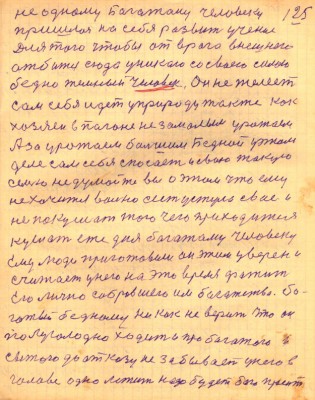 125
не одному Багатому человеку
пришлося на себя развит учение
Для того чтобы от врага внешнего
отбити сюда уникаю со своею силою
бедно темный человек, Он не жалеет
сам себя идет у природу также как
хозяен в погоне не за малым урожаем
А за урожаем балшим Бедной у этом
деле сам себя спосает и свою такую
силу не думайте вы о этом что ему
не хочится воно сиг уступит свае и
не покушат того чего приходится
кушат еже дня багатому человеку
Ему люди приготовили он этим уверен и
считает у него на это время фатит
Его лично собравшего им багатство. Бо-
гатый бедному ни как не верит что он
полуголодно ходит и про багатого и
святого до отказу не забывает у него в
голаве одно мотит надо будет бога просит